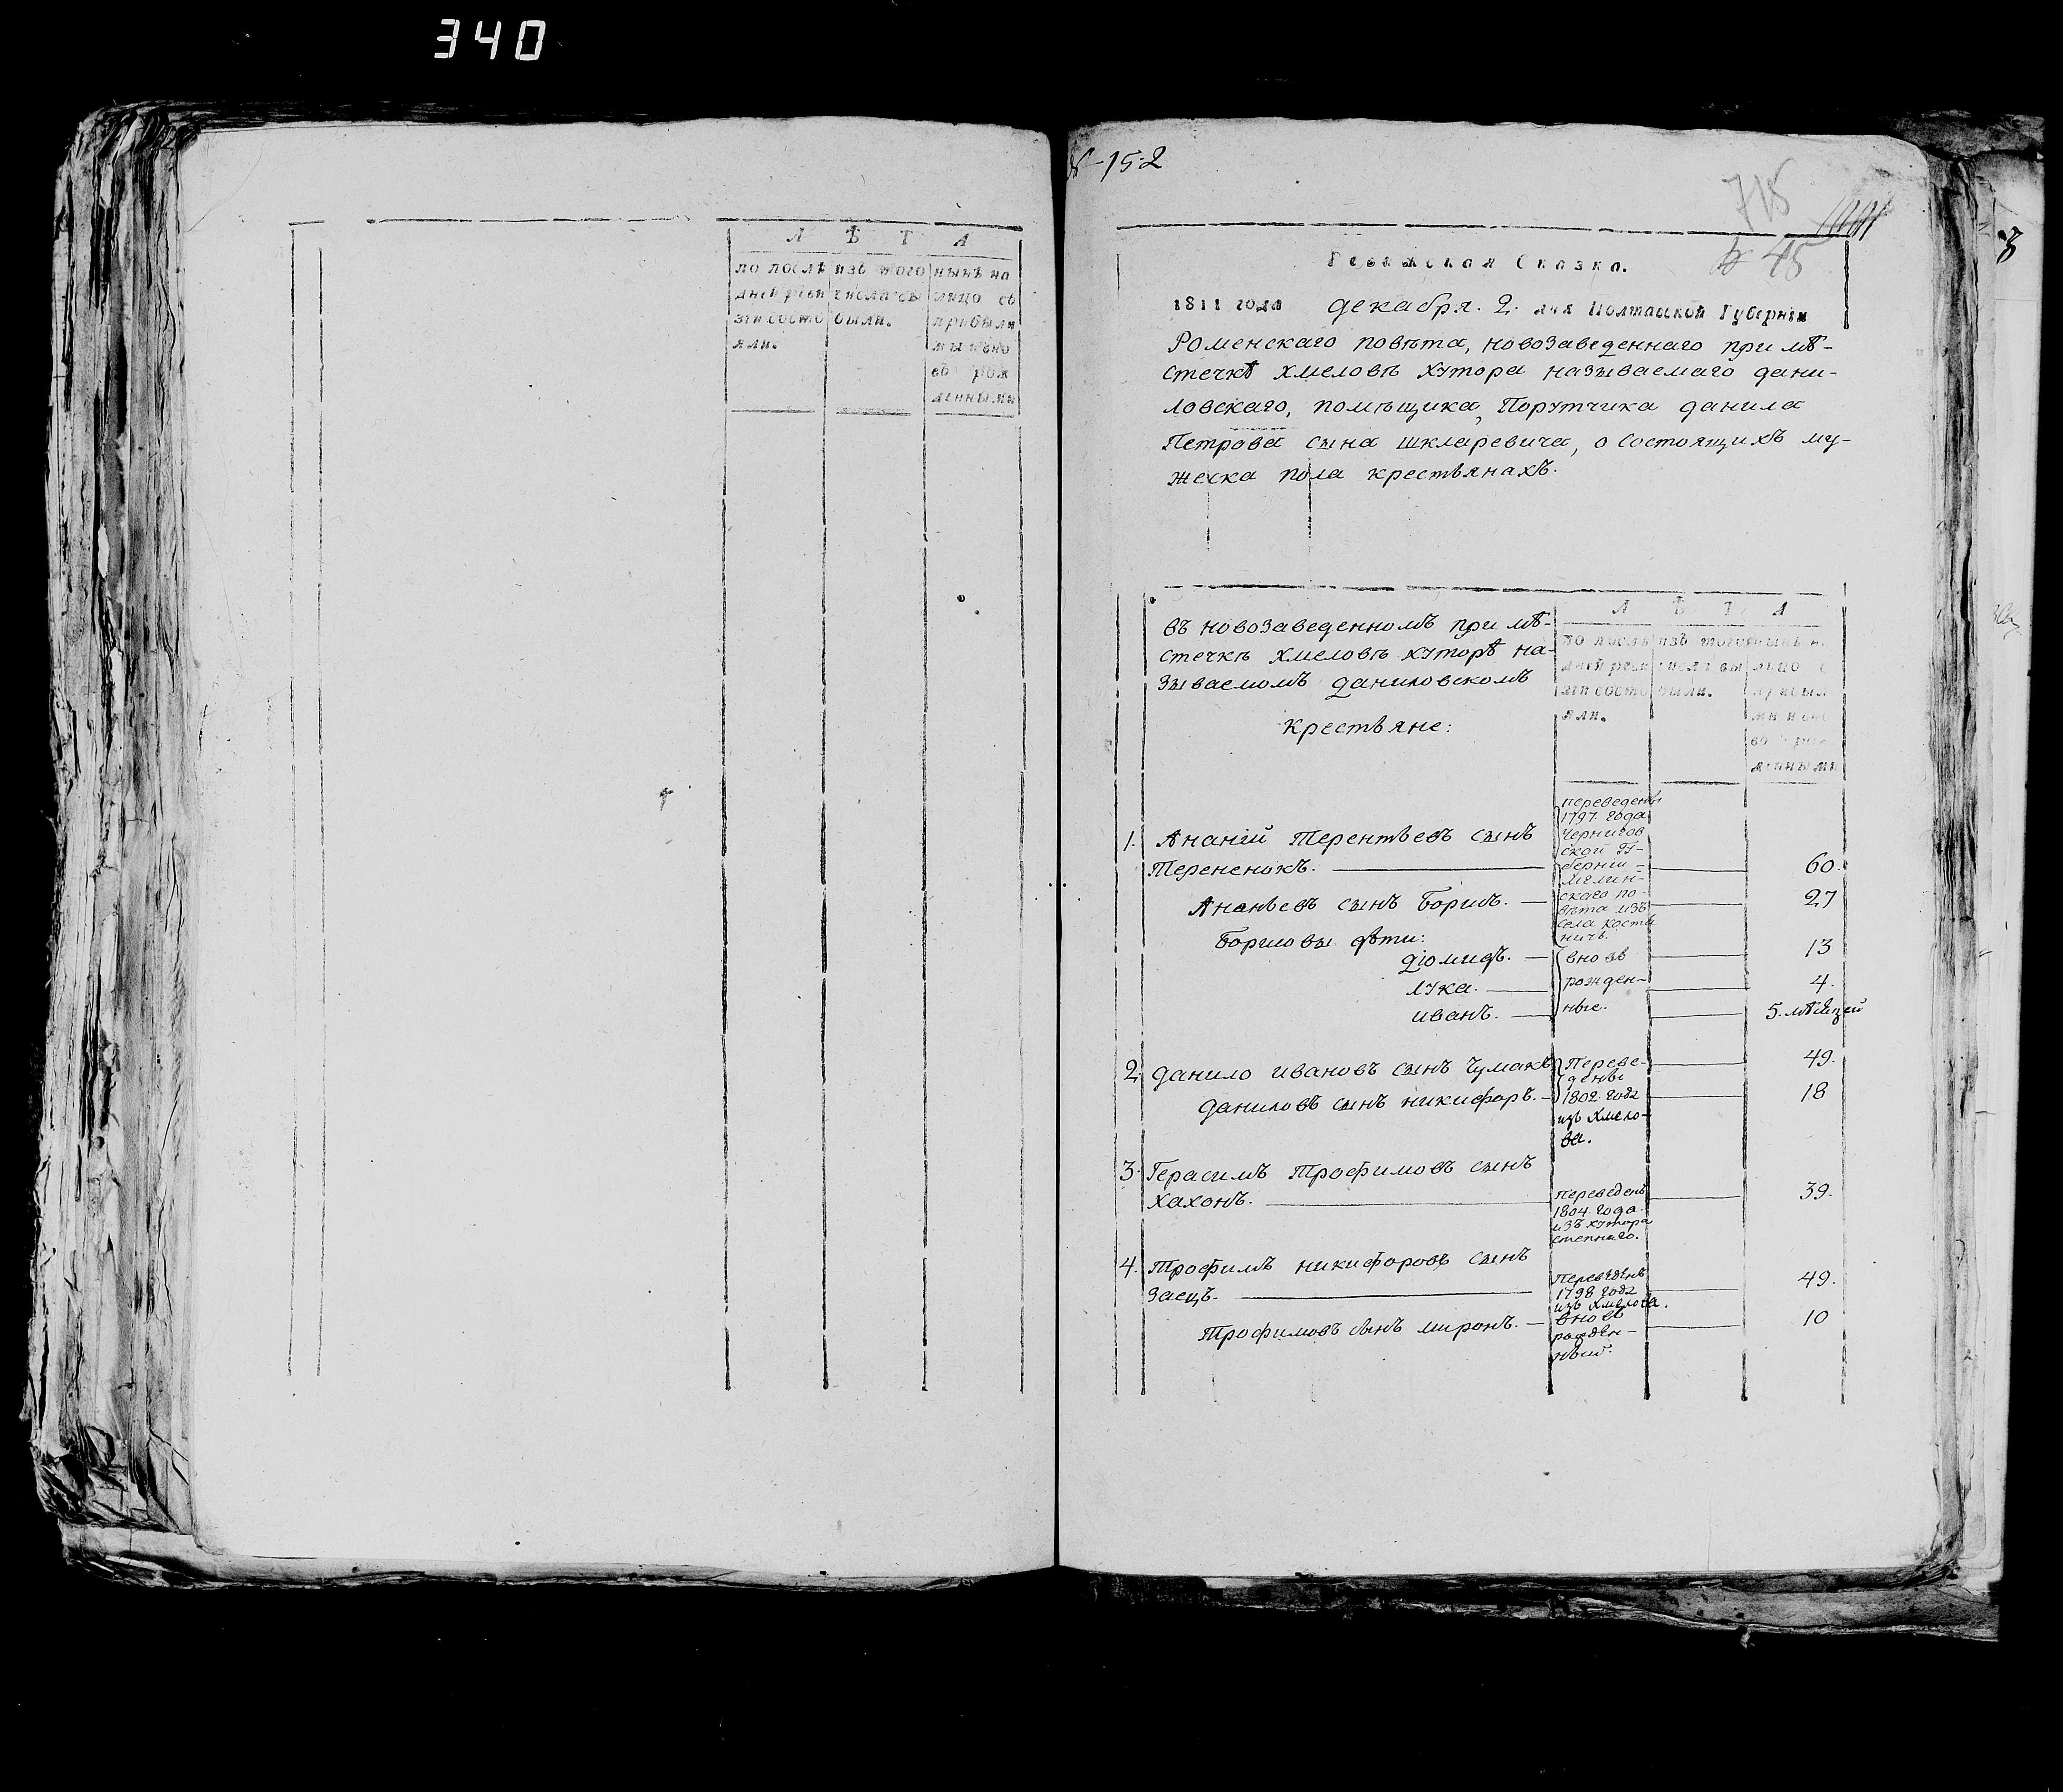 340
Л Ѣ Т А
по послѣ
дней реви
зіи состо
яли.
изъ того
числа вы
были.
нынѣ на
лицо съ
прибыли
ми и вно
въ рож
денными
№ 152
715
45
Ревижская Сказка.
1811 года декабря. 2. дня Полтавской Губерніи
Роменскаго повѣта, новозаведеннаго при мѣ-
стечкѣ хмеловѣ хутора называемаго дани-
ловскаго, помѣщика, Порутчика данила
Петрова сына шкларевича, о состоящихъ му-
жеска пола крестьянахъ.
въ новозаведенномъ при мѣ-
стечкѣ хмеловѣ хуторѣ на-
зываемомъ даниловскомъ
крестьяне:
Л Ѣ Т А
по послѣ
дней реви
зіи состо
яли.
изъ того
числа вы
были.
нынѣ н
лицо с
прибыл
ми и вно
въ рож
денными
1. Ананій Терентьевъ сынъ
Терененокъ. переведены 1797. года Чернигов ской Гу- берніи - Мглин- скаго по- вѣта изъ села косте ничъ. 60.
Ананьевъ сынъ Борисъ. 27
Борисовы дѣти:
діомидъ. вновь 13
лука. рожден- 4.
иванъ. ные. 5. мѣсяцей
2. данило ивановъ сынъ Чумакъ Переве- 49.
дены
даниловъ сынъ никифоръ. 1802. года 18
изъ Хмело-
ва.
3. Герасимъ Трофимовъ сынъ
Хахонъ. переведенъ 39.
1804. года
изъ хутора
степнаго.
4. Трофимъ никифоровъ сынъ
Заецъ. Переведенъ 49.
1798 года
изъ Хмелова.
Трофимовъ сынъ миронъ. вновь 10
рожден-
ный.